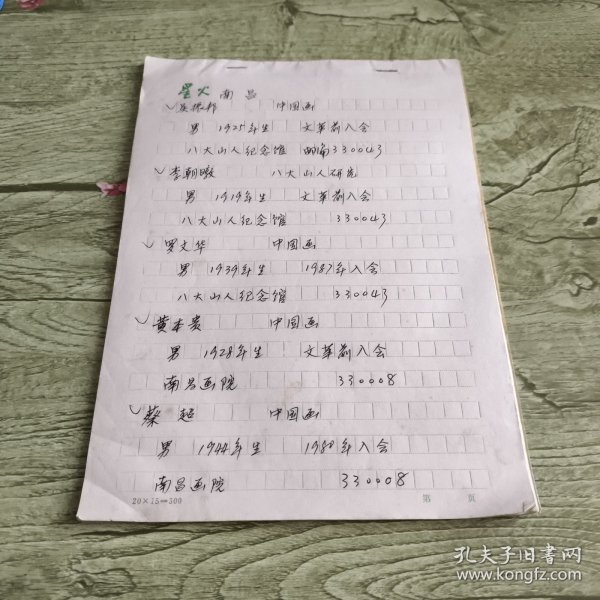 星火 南昌
振邦 中国画
男 1925年生 文革前入会
八大山人纪念馆 邮编330043
李朝暾 八大山人研究
男 1919年生 文革前入会
八大山人纪念馆 330043
罗文华 中国画
男 1939年生 1987年入会
八大山人纪念馆 330043
黄本贵 中国画
男 1928年生 文革前入会
南昌画院 330008
蔡超 中国画
男 1944年生 1980年入会
南昌画院 330008
20×15=300 第 页
孔夫子旧書网
www.kongfz.com